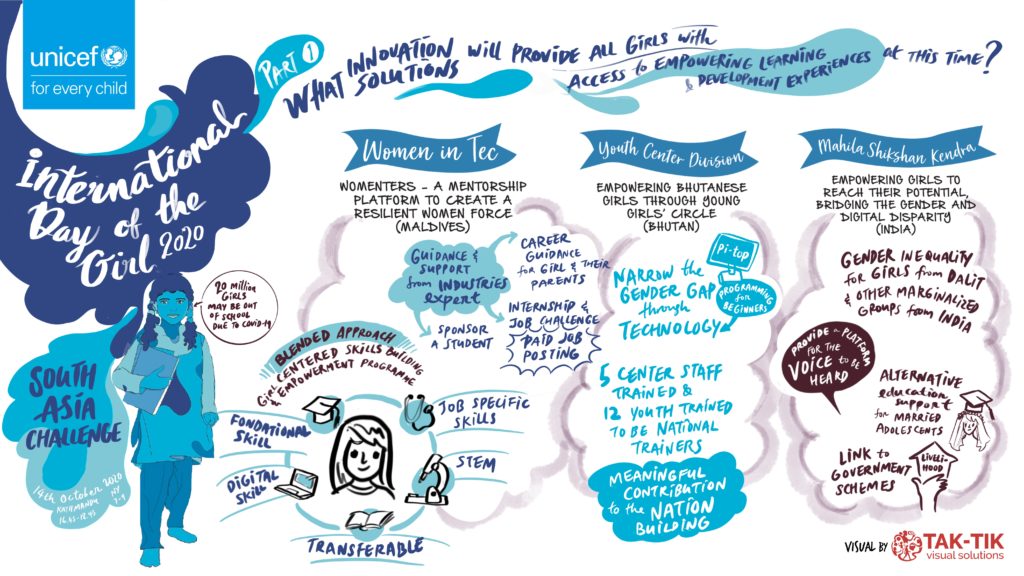 unicef
for every child
International
Day of the
Girl 2020
PART 1
WHAT INNOVATION SOLUTIONS will PROVIDE ALL GIRLS with
ACCESS to EMPOWERING LEARNING
& DEVELOPMENT EXPERIENCES at THIS TIME?
20 million
GIRLS
MAY BE OUT
OF SCHOOL
DUE TO COVID-19
SOUTH
ASIA
CHALLENGE
14th OCTOBER 2020
KATHMANDU
16.45-18.45
NY
7-9
Women in Tec
WOMENTERS – A MENTORSHIP
PLATFORM TO CREATE A
RESILIENT WOMEN FORCE
(MALDIVES)
GUIDANCE &
SUPPORT
from INDUSTRIES
expert
CAREER
GUIDANCE
for GIRL & THEIR
PARENTS
SPONSOR
A STUDENT
INTERNSHIP &
JOB CHALLENGE
PAID JOB
POSTING
BLENDED APPROACH
Girl CENTERED SKILLS BUILDING
& EMPOWERMENT PROGRAMME
FONDATIONAL
SKILL
DIGITAL
SKILL
JOB SPECIFIC
SKILLS
STEM
TRANSFERABLE
Youth Center Division
EMPOWERING BHUTANESE
GIRLS THROUGH YOUNG
GIRLS' CIRCLE
(BHUTAN)
Pi-top
PROGRAMMING
for
BEGINNERS
NARROW the
GENDER GAP
through
TECHNOLOGY
5 CENTER STAFF
TRAINED &
12 YOUTH TRAINED
TO BE NATIONAL
TRAINERS
MEANINGFUL
CONTRIBUTION
to the NATION
BUILDING
Mahila Shikshan Kendra
EMPOWERING GIRLS TO
REACH THEIR POTENTIAL,
BRIDGING THE GENDER AND
DIGITAL DISPARITY
(INDIA)
GENDER INEQUALITY
for GIRLS from DALIT
& OTHER MARGINALIZED
GROUPS from INDIA
PROVIDE a PLATFORM
FOR THE
VOICE to BE
HEARD
ALTERNATIVE
education
support
for MARRIED
ADOLESCENTS
LINK to
GOVERNMENT
SCHEMES
LIVELI-
HOOD
VISUAL BY TAK-TIK
visual solutions